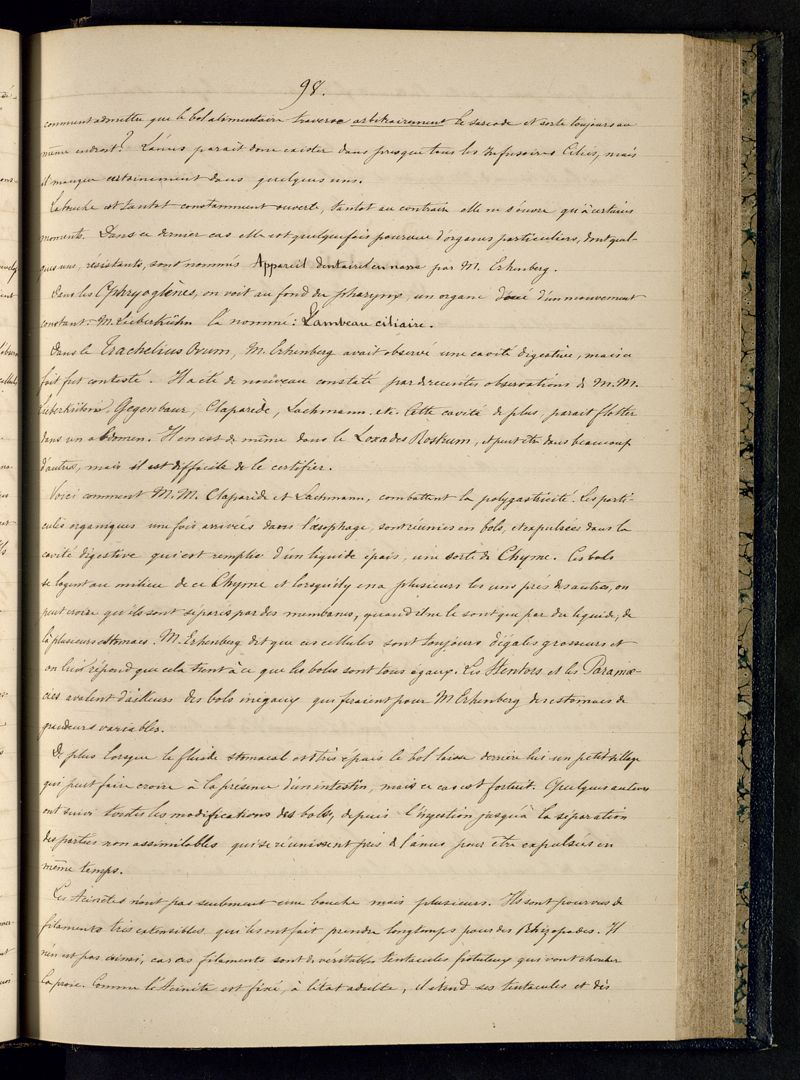 98.
comment admettre que le bol alimentaire traverse arbitrairement le sarcode et sorte toujours au
même endroit? L'anus parait donc exister dans presque tous les Infusoires Ciliés, mais
il manque certainement dans quelques uns.
La bouche est tantot constamment ouverte, tantot au contraire elle ne s'ouvre qu'à certains
moments. Dans ce dernier cas elle est quelquefois pourvue d'organes particuliers, dont quel-
ques uns, résistants, sont nommés Appareil dentaire en nasse par M. Erhenberg.
Dans les Ophryoglènes, on voit au fond du pharynx un organe doué d'un mouvement
constant. M. Lieberkühn la nommé: Lambeau ciliaire.
Dans le Trachelius Ovum, M. Erhenberg avait observé une cavité digestive, mais ce
fait fut contesté. Il a été de nouveau constaté par de récentes observations de M.M.
Lieberkühn, Gegenbaur, Claparède, Lachmann. etc. Cette cavité de plus, parait flotter
dans un abdomen. Il en est de même dans le Loxodes Rostrum, et peut être dans beaucoup
d'autres, mais il est difficile de le certifier.
Voici comment M.M. Claparède et Lachmann, combattent la polygastricité. Les parti-
cules organiques une fois arrivées dans l'œsophage, sont réunies en bols, et expulsées dans la
cavité digestive qui est remplie d'un liquide épais, une sorte de Chyme. Ces bols
se logent au milieu de ce Chyme et lorsqu'il y en a plusieurs les uns près des autres, on
peut croire qu'ils sont séparés par des membranes, quand ils ne le sont que par du liquide, de
là plusieurs estomacs. M. Erhenberg dit que ces cellules sont toujours d'égales grosseurs et
on lui répond que cela tient à ce que les boles sont tous égaux. Les Stentors et les Paramæ-
cies avalent d'ailleurs des bols inégaux qui feraient pour M. Erhenberg des estomacs de
grandeurs variables.
De plus lorsque le fluide stomacal est très épais le bol laisse derrière lui un petit sillage
qui peut faire croire à la présence d'un intestin, mais ce cas est fortuit. Quelques auteurs
ont suivi toutes les modifications des bols, depuis l'ingestion jusqu'à la séparation
des parties non assimilables qui se réunissent près de l'anus pour être expulsées en
même temps.
Les Acinètes n'ont pas seulement une bouche mais plusieurs. Ils sont pourvus de
filaments très extensibles qui les ont fait prendre longtemps pour des Rhizopodes. Il
n'en est pas ainsi, car ces filaments sont de véritables tentacules qui vont chercher
la proie. Comme l'Acinète est fixé, à l'état adulte, il étend ses tentacules et dès